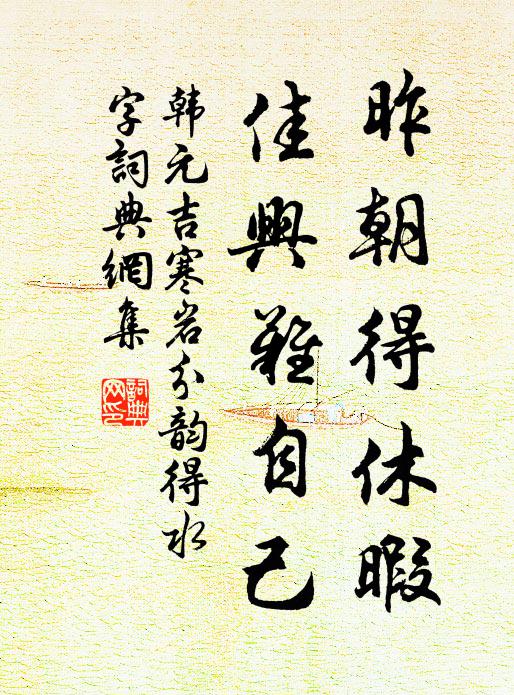 昨朝得休暇
佳興難自己
韩元吉寒岩分韵得水
字詞典網集
詞典
网印